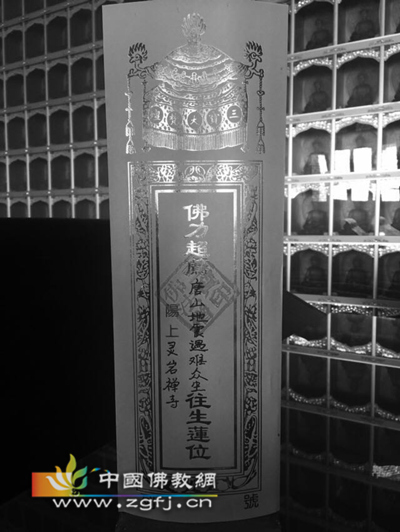 佛力超薦唐山地震遇难众生往生蓮位
陽上灵岩禅寺
號
中國佛教網
www.zgfj.cn